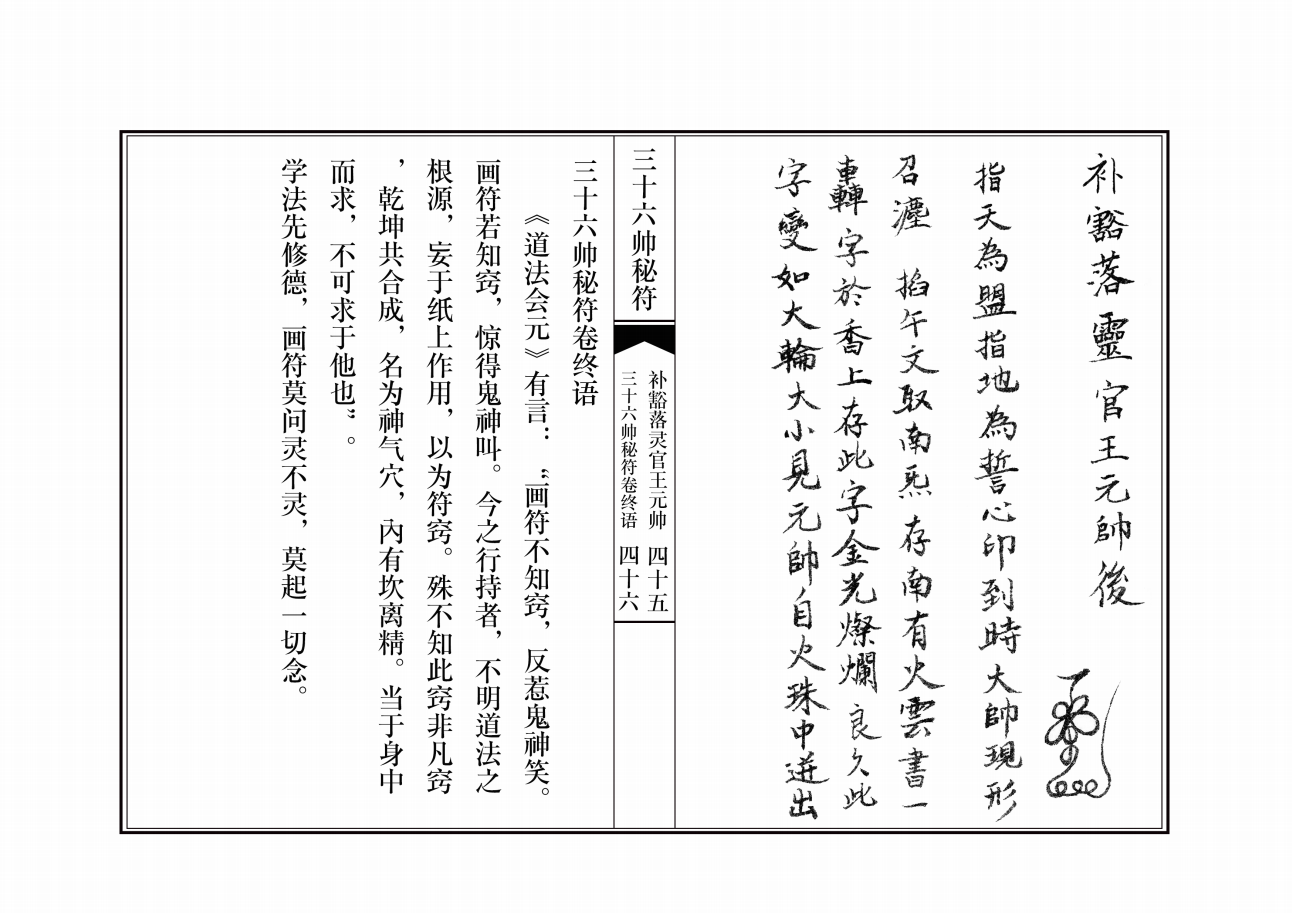 补豁落靈官王元帥後
指天為盟指地為誓心印到時大帥現形
召瀍 掐午文取南炁存南有火雲書一
轟字於香上存此字金光燦爛良久此
字變如大輪大小見元帥自火珠中迸出
三十六帅秘符
补豁落灵官王元帅 四十五
三十六帅秘符卷终语 四十六
三十六帅秘符卷终语
《道法会元》有言：“画符不知窍，反惹鬼神笑。
画符若知窍，惊得鬼神叫。今之行持者，不明道法之
根源，妄于纸上作用，以为符窍。殊不知此窍非凡窍
，乾坤共合成，名为神气穴，内有坎离精。当于身中
而求，不可求于他也”。
学法先修德，画符莫问灵不灵，莫起一切念。